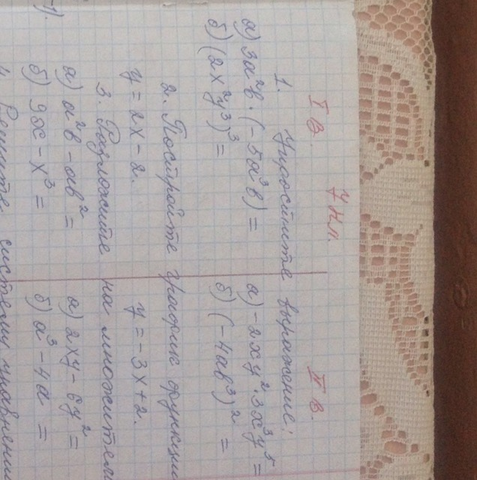 7 кл.
I в. II в.
1. Упростите выражение:
а) 3a²b · (-5a³b) = а) -2xy² · 3x³y⁵ =
б) (2x²y³)³ = б) (-4ab³)² =
2. Постройте график функции
y = 2x - 2. y = -3x + 2.
3. Разложите на множители
а) a²b - ab² = а) 2xy - 6y² =
б) 9x - x³ = б) a³ - 4a =
4. Решите систему уравнений